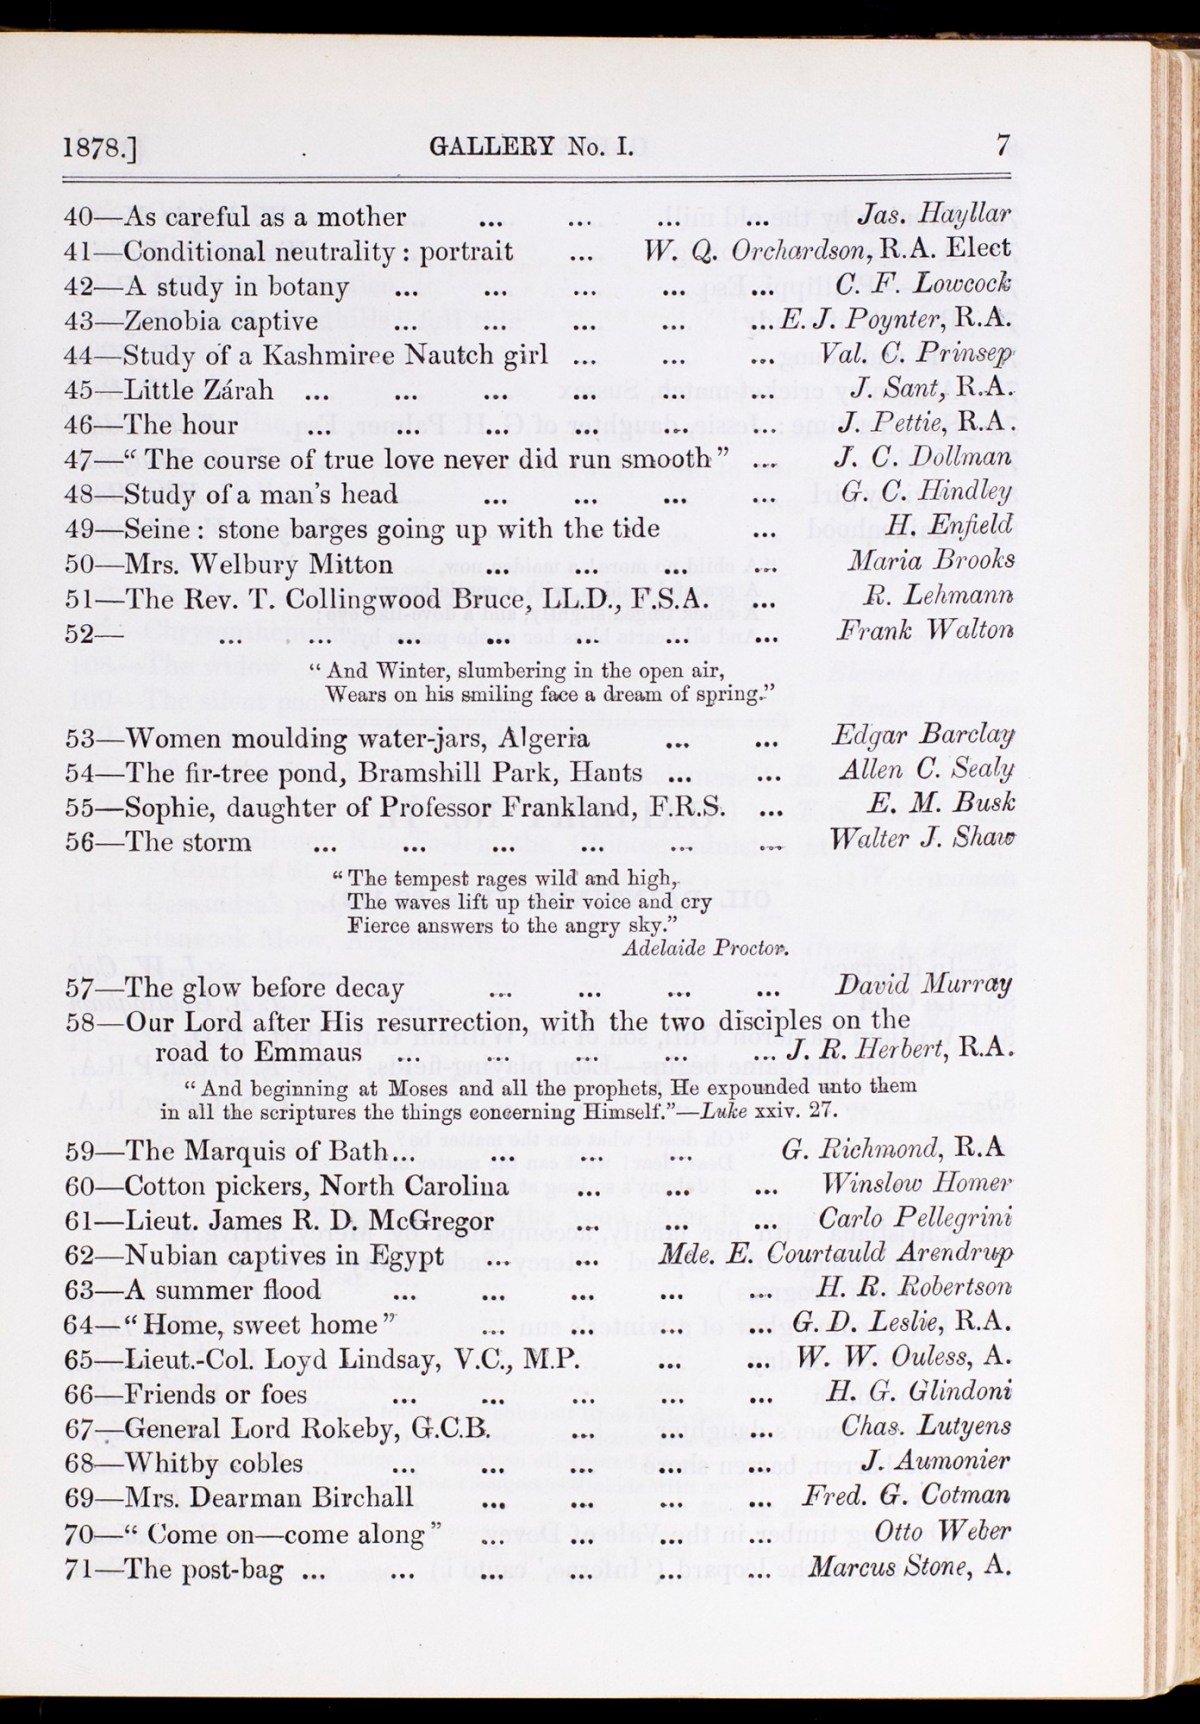 1878.] GALLERY No. I. 7
40—As careful as a mother ... ... ... ... Jas. Hayllar
41—Conditional neutrality : portrait ... W. Q. Orchardson, R.A. Elect
42—A study in botany ... ... ... ... ... C. F. Lowcock
43—Zenobia captive ... ... ... ... ... E. J. Poynter, R.A.
44—Study of a Kashmiree Nautch girl ... ... ... Val. C. Prinsep
45—Little Zárah ... ... ... ... ... ... J. Sant, R.A.
46—The hour ... ... ... ... ... ... J. Pettie, R.A.
47—“ The course of true love never did run smooth ” ... J. C. Dollman
48—Study of a man’s head ... ... ... ... G. C. Hindley
49—Seine : stone barges going up with the tide ... H. Enfield
50—Mrs. Welbury Mitton ... ... ... ... Maria Brooks
51—The Rev. T. Collingwood Bruce, LL.D., F.S.A. ... R. Lehmann
52— ... ... ... ... ... ... ... Frank Walton
“ And Winter, slumbering in the open air,
Wears on his smiling face a dream of spring.”
53—Women moulding water-jars, Algeria ... ... Edgar Barclay
54—The fir-tree pond, Bramshill Park, Hants ... ... Allen C. Sealy
55—Sophie, daughter of Professor Frankland, F.R.S. ... E. M. Busk
56—The storm ... ... ... ... ... ... Walter J. Shaw
“ The tempest rages wild and high,
The waves lift up their voice and cry
Fierce answers to the angry sky.”
Adelaide Proctor.
57—The glow before decay ... ... ... ... David Murray
58—Our Lord after His resurrection, with the two disciples on the
road to Emmaus ... ... ... ... ... J. R. Herbert, R.A.
“ And beginning at Moses and all the prophets, He expounded unto them
in all the scriptures the things concerning Himself.”—Luke xxiv. 27.
59—The Marquis of Bath... ... ... ... G. Richmond, R.A
60—Cotton pickers, North Carolina ... ... ... Winslow Homer
61—Lieut. James R. D. McGregor ... ... ... Carlo Pellegrini
62—Nubian captives in Egypt ... ... Mde. E. Courtauld Arendrup
63—A summer flood ... ... ... ... ... H. R. Robertson
64—“ Home, sweet home ” ... ... ... ... G. D. Leslie, R.A.
65—Lieut.-Col. Loyd Lindsay, V.C., M.P. ... ... W. W. Ouless, A.
66—Friends or foes ... ... ... ... ... H. G. Glindoni
67—General Lord Rokeby, G.C.B. ... ... ... Chas. Lutyens
68—Whitby cobles ... ... ... ... ... J. Aumonier
69—Mrs. Dearman Birchall ... ... ... ... Fred. G. Cotman
70—“ Come on—come along ” ... ... ... ... Otto Weber
71—The post-bag ... ... ... ... ... ... Marcus Stone, A.